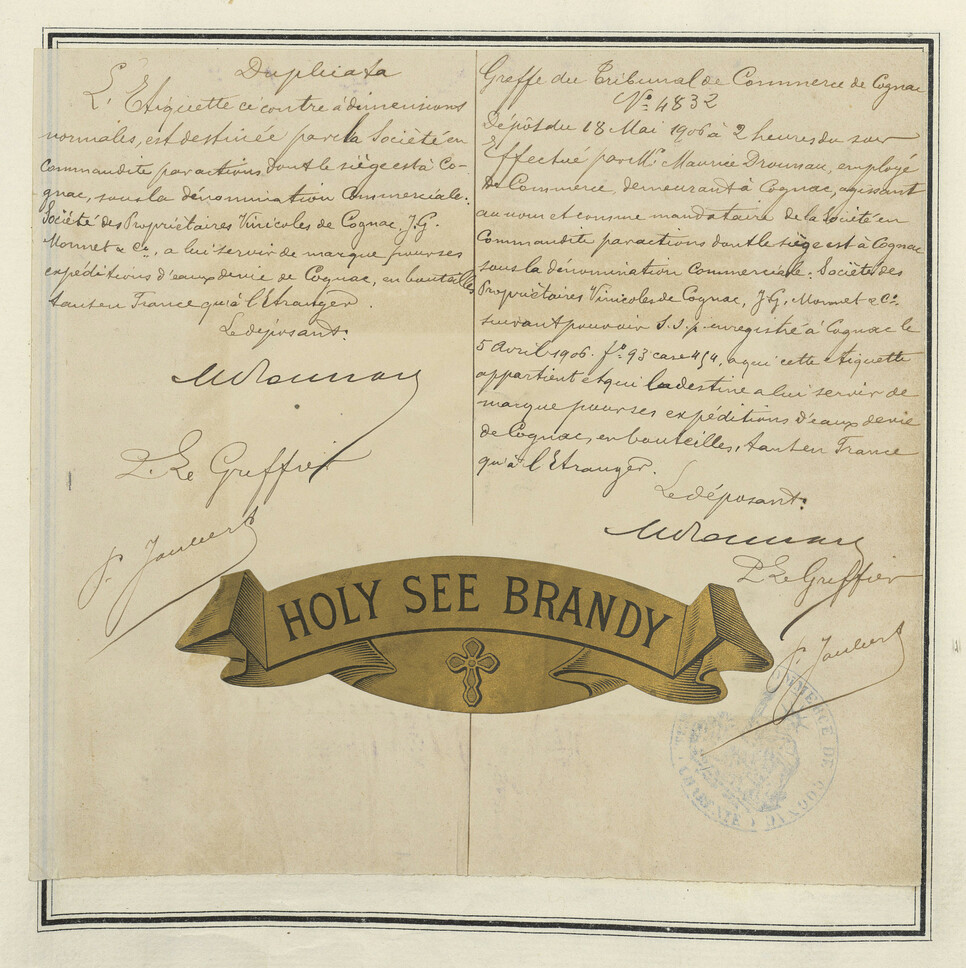 Duplicata
L'Etiquette ci contre à dimensions
normales, est destinée par la Société en
Commandite par actions dont le siège est à Co-
gnac, sous la dénomination Commerciale:
Société des Propriétaires Vinicoles de Cognac, J.G.
Monnet & Cie, a lui servir de marque pour ses
expéditions d'eaux de vie de Cognac, en bouteilles
tant en France qu'à l'Etranger.
Le déposant:
P. Le Greffier
P. Joubert
Greffe du Tribunal de Commerce de Cognac
No 4832
Dépôt du 18 Mai 1906 à 2 heures du soir
Effectué par Mr Maurice Drounau, employé
de Commerce, demeurant à Cognac, agissant
au nom et comme mandataire de la Société en
Commandite par actions dont le siège est à Cognac
sous la dénomination Commerciale: Société des
Propriétaires Vinicoles de Cognac, J.G. Monnet & Co
suivant pouvoir S.S.p. enregistré à Cognac le
5 Avril 1906. fo 93 case 454, a qui cette etiquette
appartient et qui la destine a lui servir de
marque pour ses expéditions d'eaux de vie
de Cognac, en bouteilles, tant en France
qu'à l'Etranger.
Le déposant:
P. Le Greffier
P. Joubert
HOLY SEE BRANDY
COMMERCE DE COGNAC